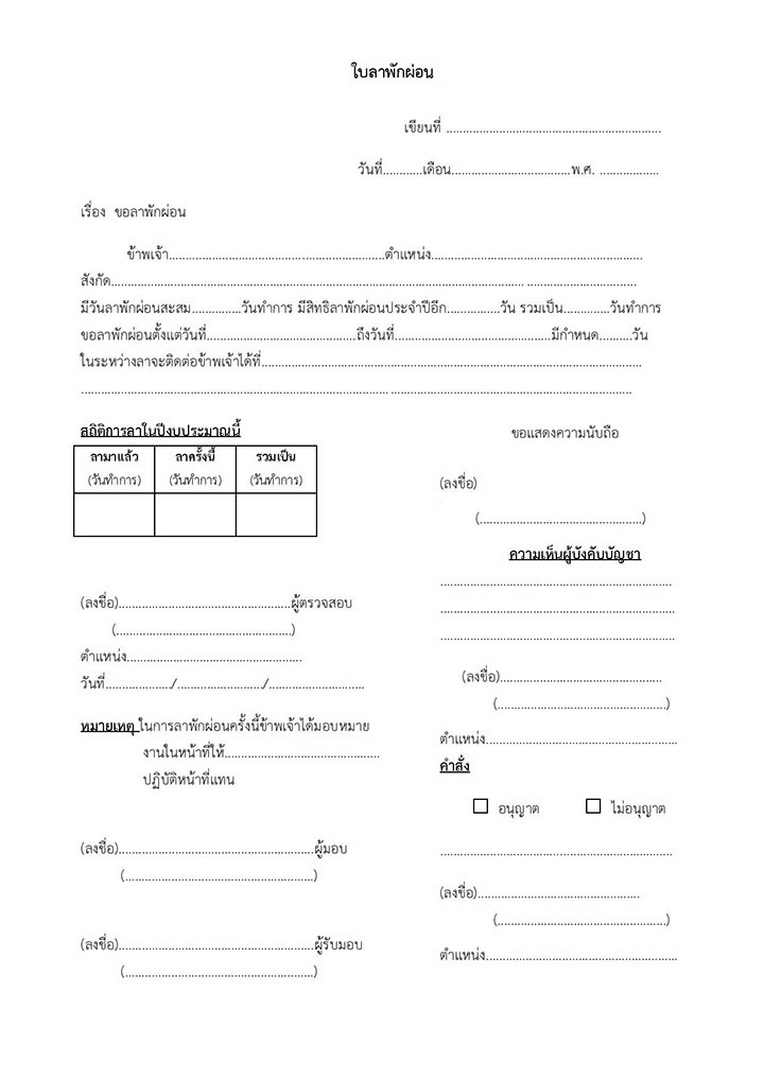 ใบลาพักผ่อน
เขียนที่ ................................................................
วันที่............เดือน....................................พ.ศ. ..................
เรื่อง ขอลาพักผ่อน
ข้าพเจ้า.................................................................ตำแหน่ง................................................................
สังกัด............................................................................................................................. .................................
มีวันลาพักผ่อนสะสม...............วันทำการ มีสิทธิลาพักผ่อนประจำปีอีก................วัน รวมเป็น..............วันทำการ
ขอลาพักผ่อนตั้งแต่วันที่.............................................ถึงวันที่...............................................มีกำหนด..........วัน
ในระหว่างลาจะติดต่อข้าพเจ้าได้ที่..................................................................................................................
............................................................................................. .........................................................................
สถิติการลาในปีงบประมาณนี้
ลามาแล้ว ลาครั้งนี้ รวมเป็น
(วันทำการ) (วันทำการ) (วันทำการ)
(ลงชื่อ)....................................................ผู้ตรวจสอบ
(.....................................................)
ตำแหน่ง.....................................................
วันที่..................../........................../.............................
หมายเหตุ ในการลาพักผ่อนครั้งนี้ข้าพเจ้าได้มอบหมาย
งานในหน้าที่ให้...............................................
ปฏิบัติหน้าที่แทน
(ลงชื่อ)...........................................................ผู้มอบ
(.........................................................)
(ลงชื่อ)...........................................................ผู้รับมอบ
(.........................................................)
ขอแสดงความนับถือ
(ลงชื่อ)
(.................................................)
ความเห็นผู้บังคับบัญชา
......................................................................
.......................................................................
.......................................................................
(ลงชื่อ).................................................
(...................................................)
ตำแหน่ง..........................................................
คำสั่ง
☐ อนุญาต ☐ ไม่อนุญาต
......................................................................
(ลงชื่อ).................................................
(...................................................)
ตำแหน่ง..........................................................